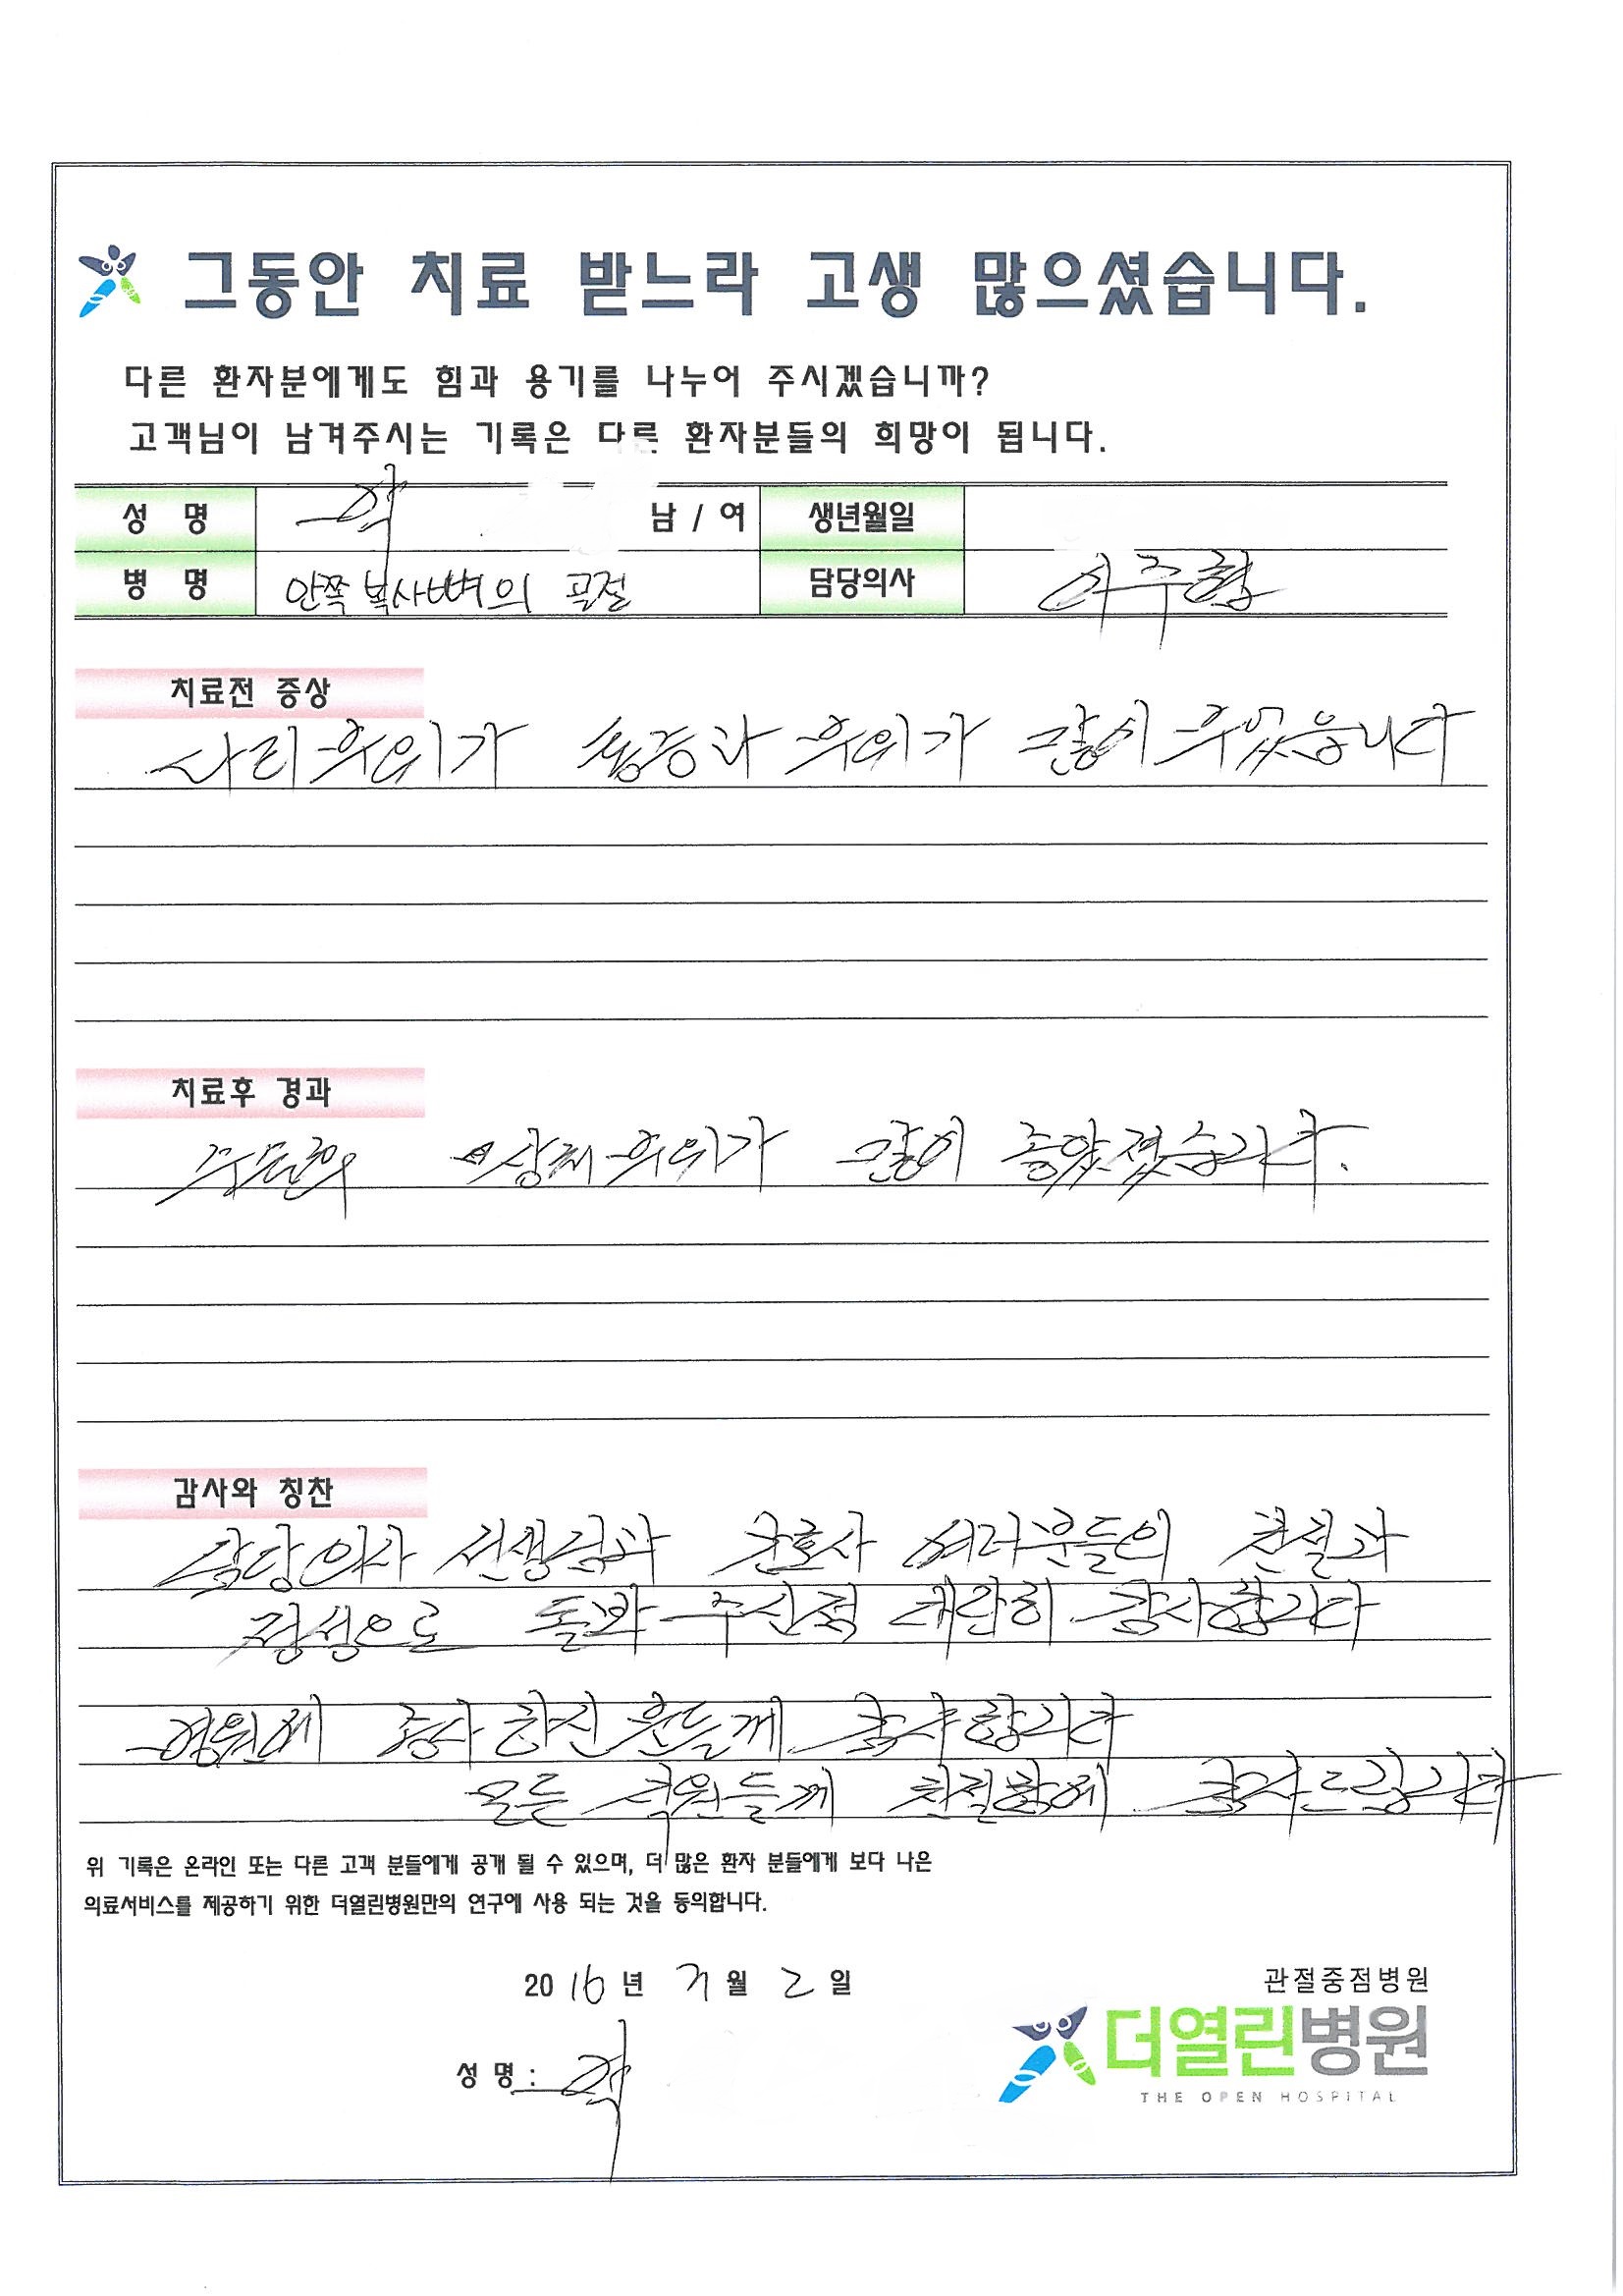 그동안 치료 받느라 고생 많으셨습니다.
다른 환자분에게도 힘과 용기를 나누어 주시겠습니까?
고객님이 남겨주시는 기록은 다른 환자분들의 희망이 됩니다.
성 명 남 / 여 생년월일
병 명 안쪽 복사뼈의 골절 담당의사 이주형
치료전 증상
다리부위가 통증과 부위가 많이 부었습니다
치료후 경과
수술후 상처부위가 많이 좋았졌습니다.
감사와 칭찬
담당의사 선생님과 간호사 여러분들의 친절과
정성으로 돌봐주신점 대단히 감사합니다
병원에 종사하신 분들께 감사합니다
모든 직원들께 친절함에 감사드립니다
위 기록은 온라인 또는 다른 고객 분들에게 공개 될 수 있으며, 더 많은 환자 분들에게 보다 나은
의료서비스를 제공하기 위한 더열린병원만의 연구에 사용 되는 것을 동의합니다.
2016년 7월 2일
성 명 :
관절중점병원
더열린병원
THE OPEN HOSPITAL